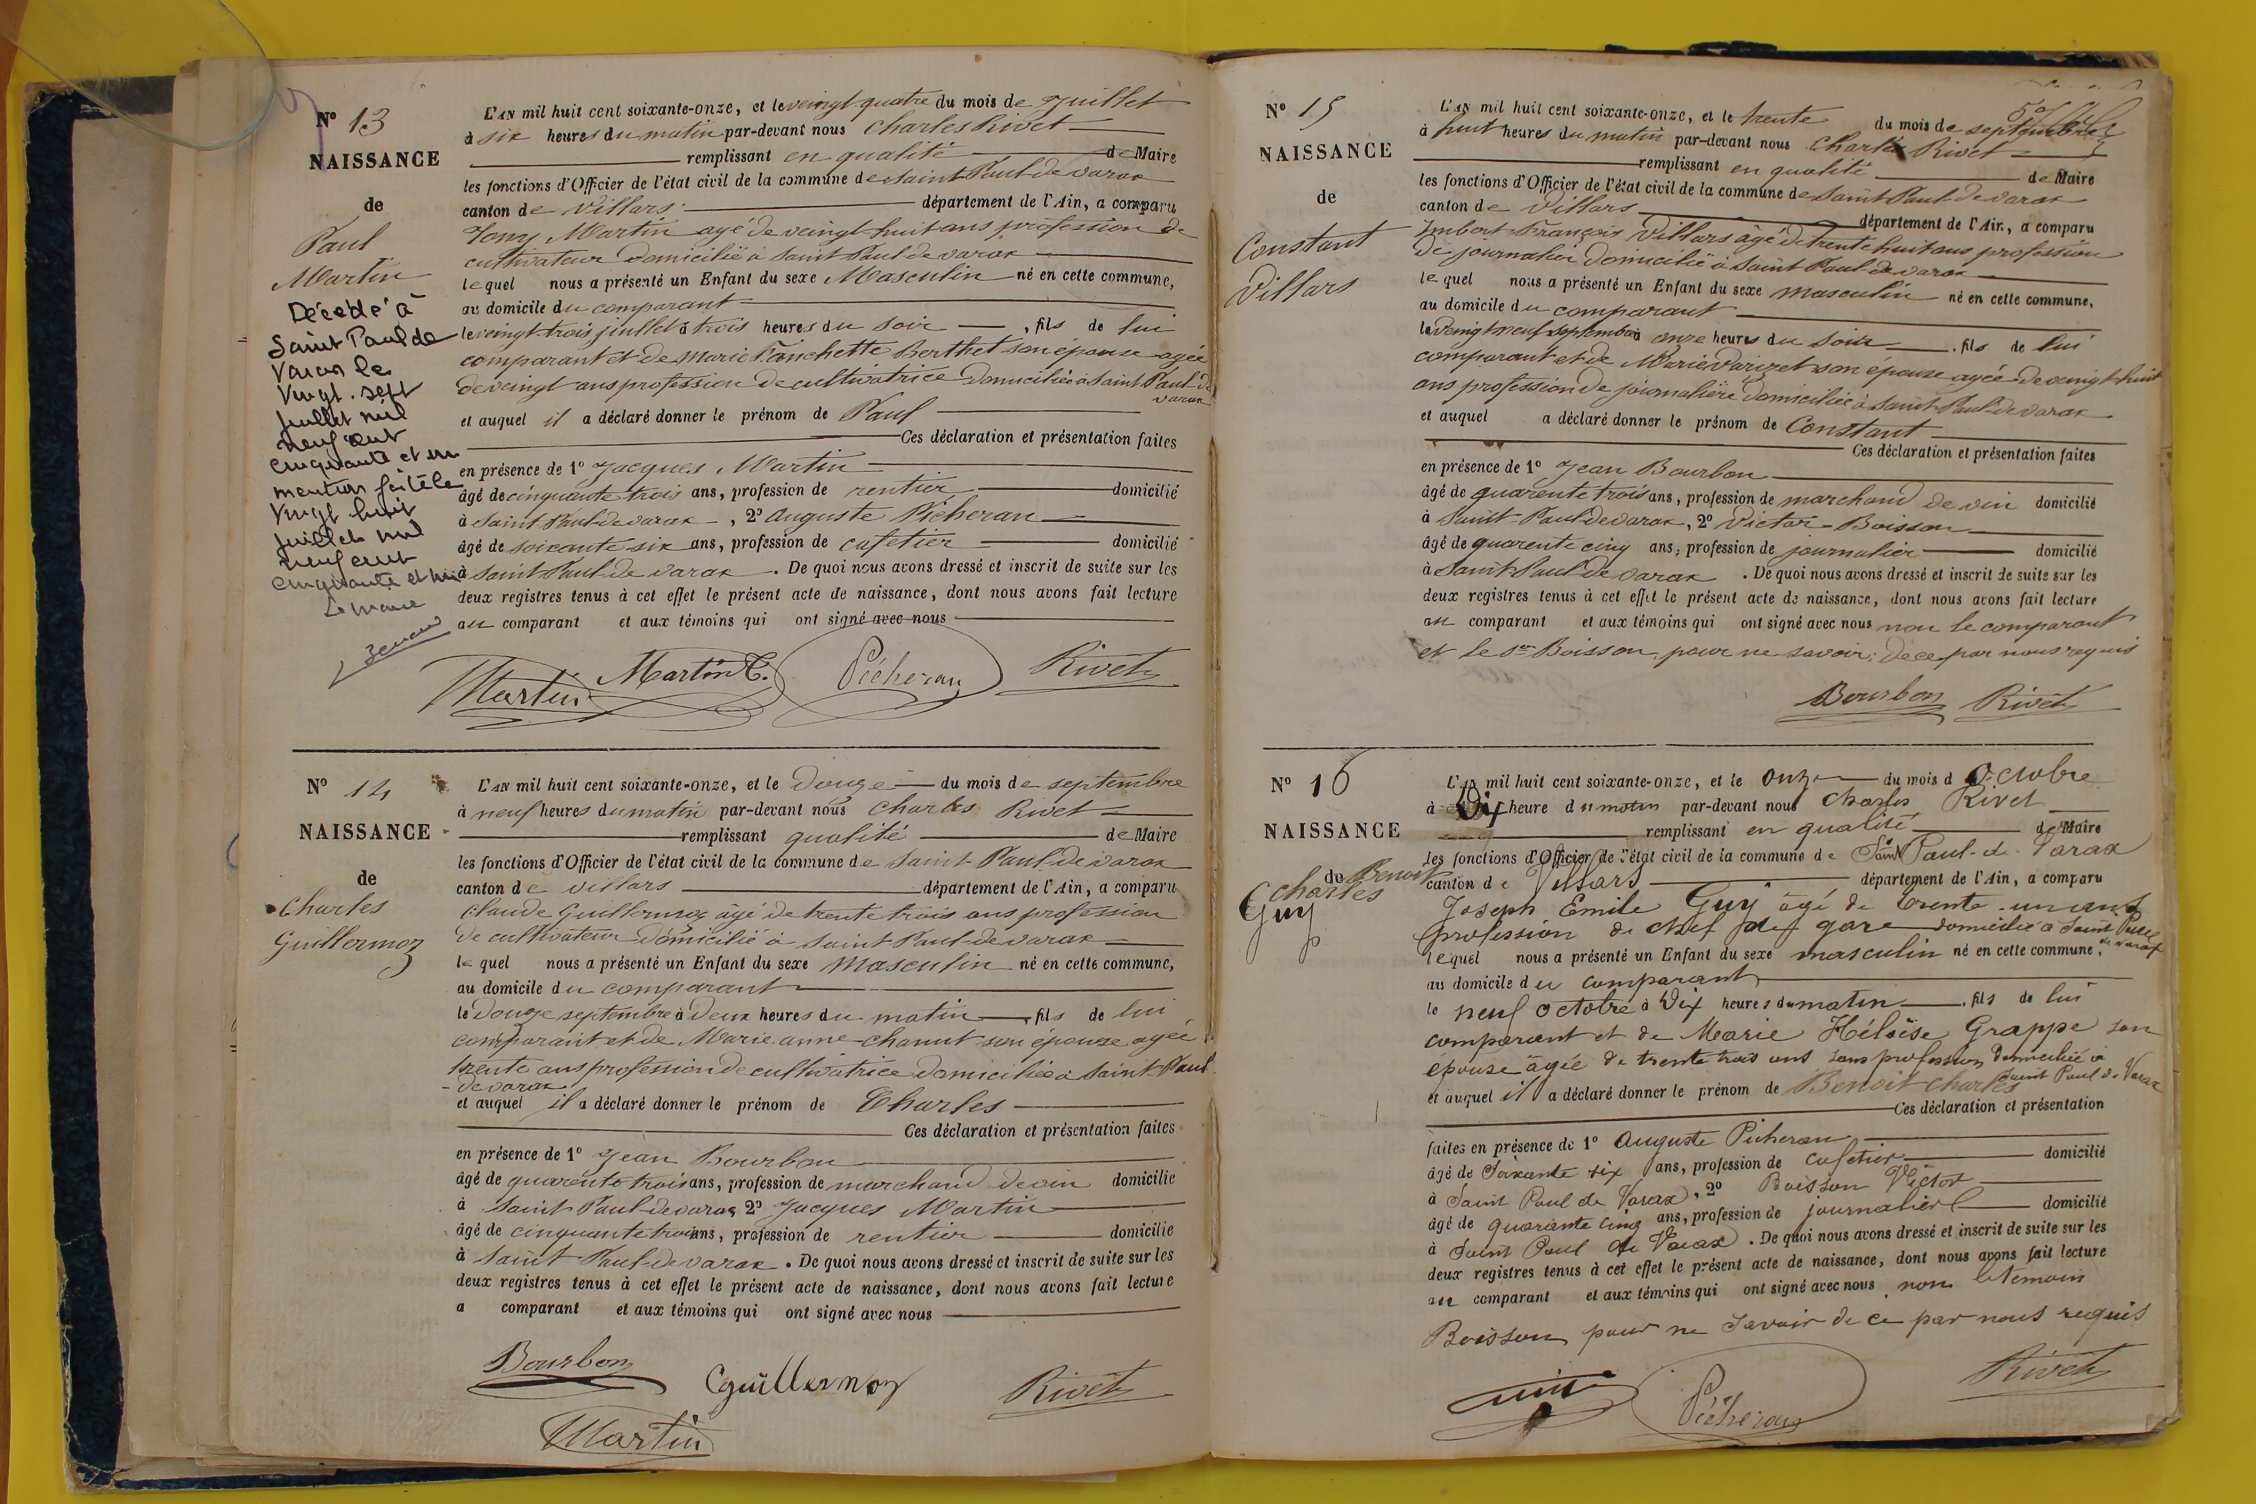 N° 13
NAISSANCE
de
Paul
Martin
Décédé à
Saint Paul de
Varax le
Vingt-sept
juillet mil
neuf cent
cinquante et un
mention faite le
Vingt huit
juillet mil
neuf cent
cinquante et un
Le maire
L'AN mil huit cent soixante-onze, et le veingt-quatre du mois de Juillet
à six heures du matin par-devant nous Charles Rivet
remplissant en qualité de Maire
les fonctions d'Officier de l'état civil de la commune de Saint Paul de varax
canton de villars département de l'Ain, a comparu
Tony Martin agé de veingt-huit ans profession de
cultivateur domicilié à Saint Paul de varax
lequel nous a présenté un Enfant du sexe Masculin né en cette commune,
au domicile du comparant
le veingt-trois juillet à trois heures du soir, fils de lui
comparant et de Marie Fanchette Berthet son épouse agée
de veingt ans profession de cultivatrice domiciliée à Saint Paul de
varax
et auquel il a déclaré donner le prénom de Paul
Ces déclaration et présentation faites
en présence de 1° Jacques Martin
âgé de cinquante trois ans, profession de rentier domicilié
à Saint Paul de varax, 2° Auguste Picheran
âgé de soixante six ans, profession de cafetier domicilié
à Saint Paul de varax. De quoi nous avons dressé et inscrit de suite sur les
deux registres tenus à cet effet le présent acte de naissance, dont nous avons fait lecture
au comparant et aux témoins qui ont signé avec nous
Martin Martin T. Picheran Rivet
N° 14
NAISSANCE
de
Charles
Guillermoz
L'AN mil huit cent soixante-onze, et le Douze du mois de septembre
à neuf heures du matin par-devant nous Charles Rivet
remplissant qualité de Maire
les fonctions d'Officier de l'état civil de la commune de Saint Paul de varax
canton de villars département de l'Ain, a comparu
Claude Guillermoz âgé de trente trois ans profession
de cultivateur domicilié à Saint Paul de varax
lequel nous a présenté un Enfant du sexe masculin né en cette commune,
au domicile du comparant
le Douze septembre à Deux heures du matin, fils de lui
comparant et de Marie anne chanut son épouse agée
trente ans profession de cultivatrice domiciliée à Saint Paul
de varax
et auquel il a déclaré donner le prénom de Charles
Ces déclaration et présentation faites
en présence de 1° Jean Bourbon
âgé de quarente trois ans, profession de marchand de vin domicilié
à Saint Paul de varax 2° Jacques Martin
âgé de cinquante trois ans, profession de rentier domicilié
à Saint Paul de varax. De quoi nous avons dressé et inscrit de suite sur les
deux registres tenus à cet effet le présent acte de naissance, dont nous avons fait lecture
a comparant et aux témoins qui ont signé avec nous
Bourbon Cguillermoz Rivet
Martin
N° 15
NAISSANCE
de
Constant
Villars
L'AN mil huit cent soixante-onze, et le trente du mois de septembre
à huit heures du matin par-devant nous Charles Rivet
remplissant en qualité de Maire
les fonctions d'Officier de l'état civil de la commune de Saint Paul de varax
canton de villars département de l'Ain, a comparu
Imbert François Villars âgé de trente huit ans profession
de journalier domicilié à Saint Paul de varax
lequel nous a présenté un Enfant du sexe masculin né en cette commune,
au domicile du comparant
le veingt neuf septembre à onze heures du soir, fils de lui
comparant et de Marie Varizet son épouse agée de veingt huit
ans profession de journalière domiciliée à Saint Paul de varax
et auquel a déclaré donner le prénom de Constant
Ces déclaration et présentation faites
en présence de 1° Jean Bourbon
âgé de quarente trois ans, profession de marchand de vin domicilié
à Saint Paul de varax, 2° Victor Boisson
âgé de quarente cinq ans, profession de journalier domicilié
à Saint Paul de varax. De quoi nous avons dressé et inscrit de suite sur les
deux registres tenus à cet effet le présent acte de naissance, dont nous avons fait lecture
au comparant et aux témoins qui ont signé avec nous non le comparant
et le sr Boisson pour ne savoir, de ce par nous requis
Bourbon Rivet
N° 16
NAISSANCE
de Benoit
Charles
Guy
L'AN mil huit cent soixante-onze, et le onze du mois d Octobre
à Dix heure du matin par-devant nous Charles Rivet
remplissant en qualité de Maire
les fonctions d'Officier de l'état civil de la commune de Saint Paul-de Varax
canton de Villars département de l'Ain, a comparu
Joseph Emile Guy âgé de trente-un ans
profession de chef de gare domicilié à Saint Paul
de varax
lequel nous a présenté un Enfant du sexe masculin né en cette commune,
au domicile du comparant
le neuf octobre à Dix heures du matin, fils de lui
comparant et de Marie Héloïse Grappe son
épouse âgée de trente trois ans sans profession domiciliée à
Saint Paul de Varax
et auquel il a déclaré donner le prénom de Benoit Charles
Ces déclaration et présentation
faites en présence de 1° Auguste Picheran
âgé de Soixante six ans, profession de cafetier domicilié
à Saint Paul de Varax, 2° Boisson Victor
âgé de quarante cinq ans, profession de journalier domicilié
à Saint Paul de Varax. De quoi nous avons dressé et inscrit de suite sur les
deux registres tenus à cet effet le présent acte de naissance, dont nous avons fait lecture
au comparant et aux témoins qui ont signé avec nous non le témoin
Boisson pour ne savoir de ce par nous requis
Picheran Rivet